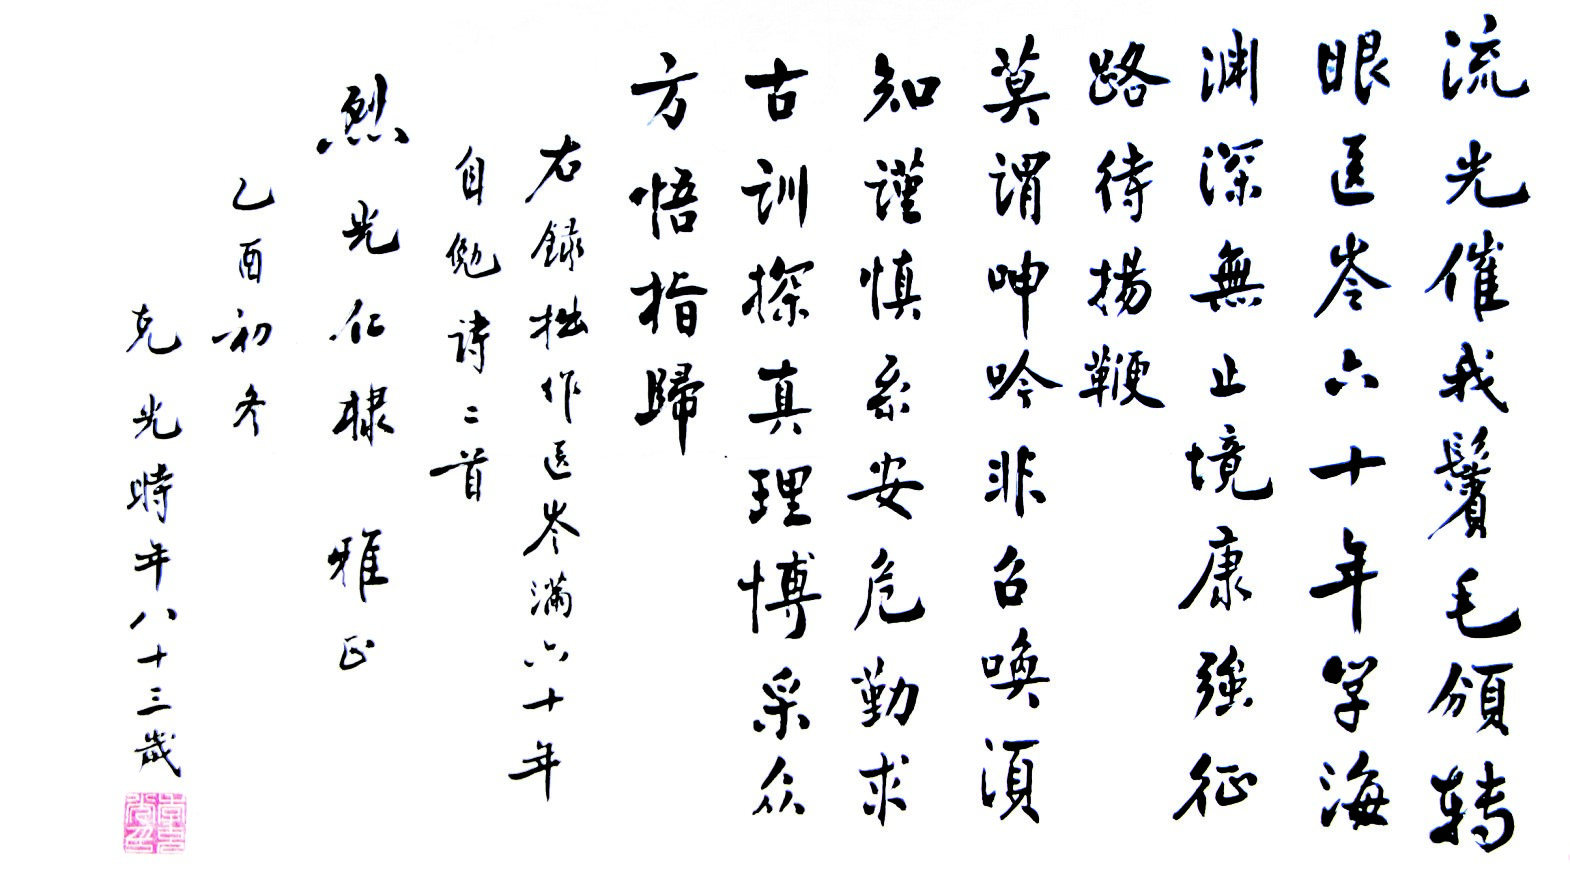 流光催我鬢毛頒轉
眼医岑六十年學海
渊深無止境康強征
路待揚鞭
莫謂呻吟非召喚須
知謹慎系安危勤求
古訓探真理博采众
方悟指歸
右録拙作医岑满六十年
自勉诗二首
烈光仁棣 雅正
乙酉初冬
克光時年八十三歲